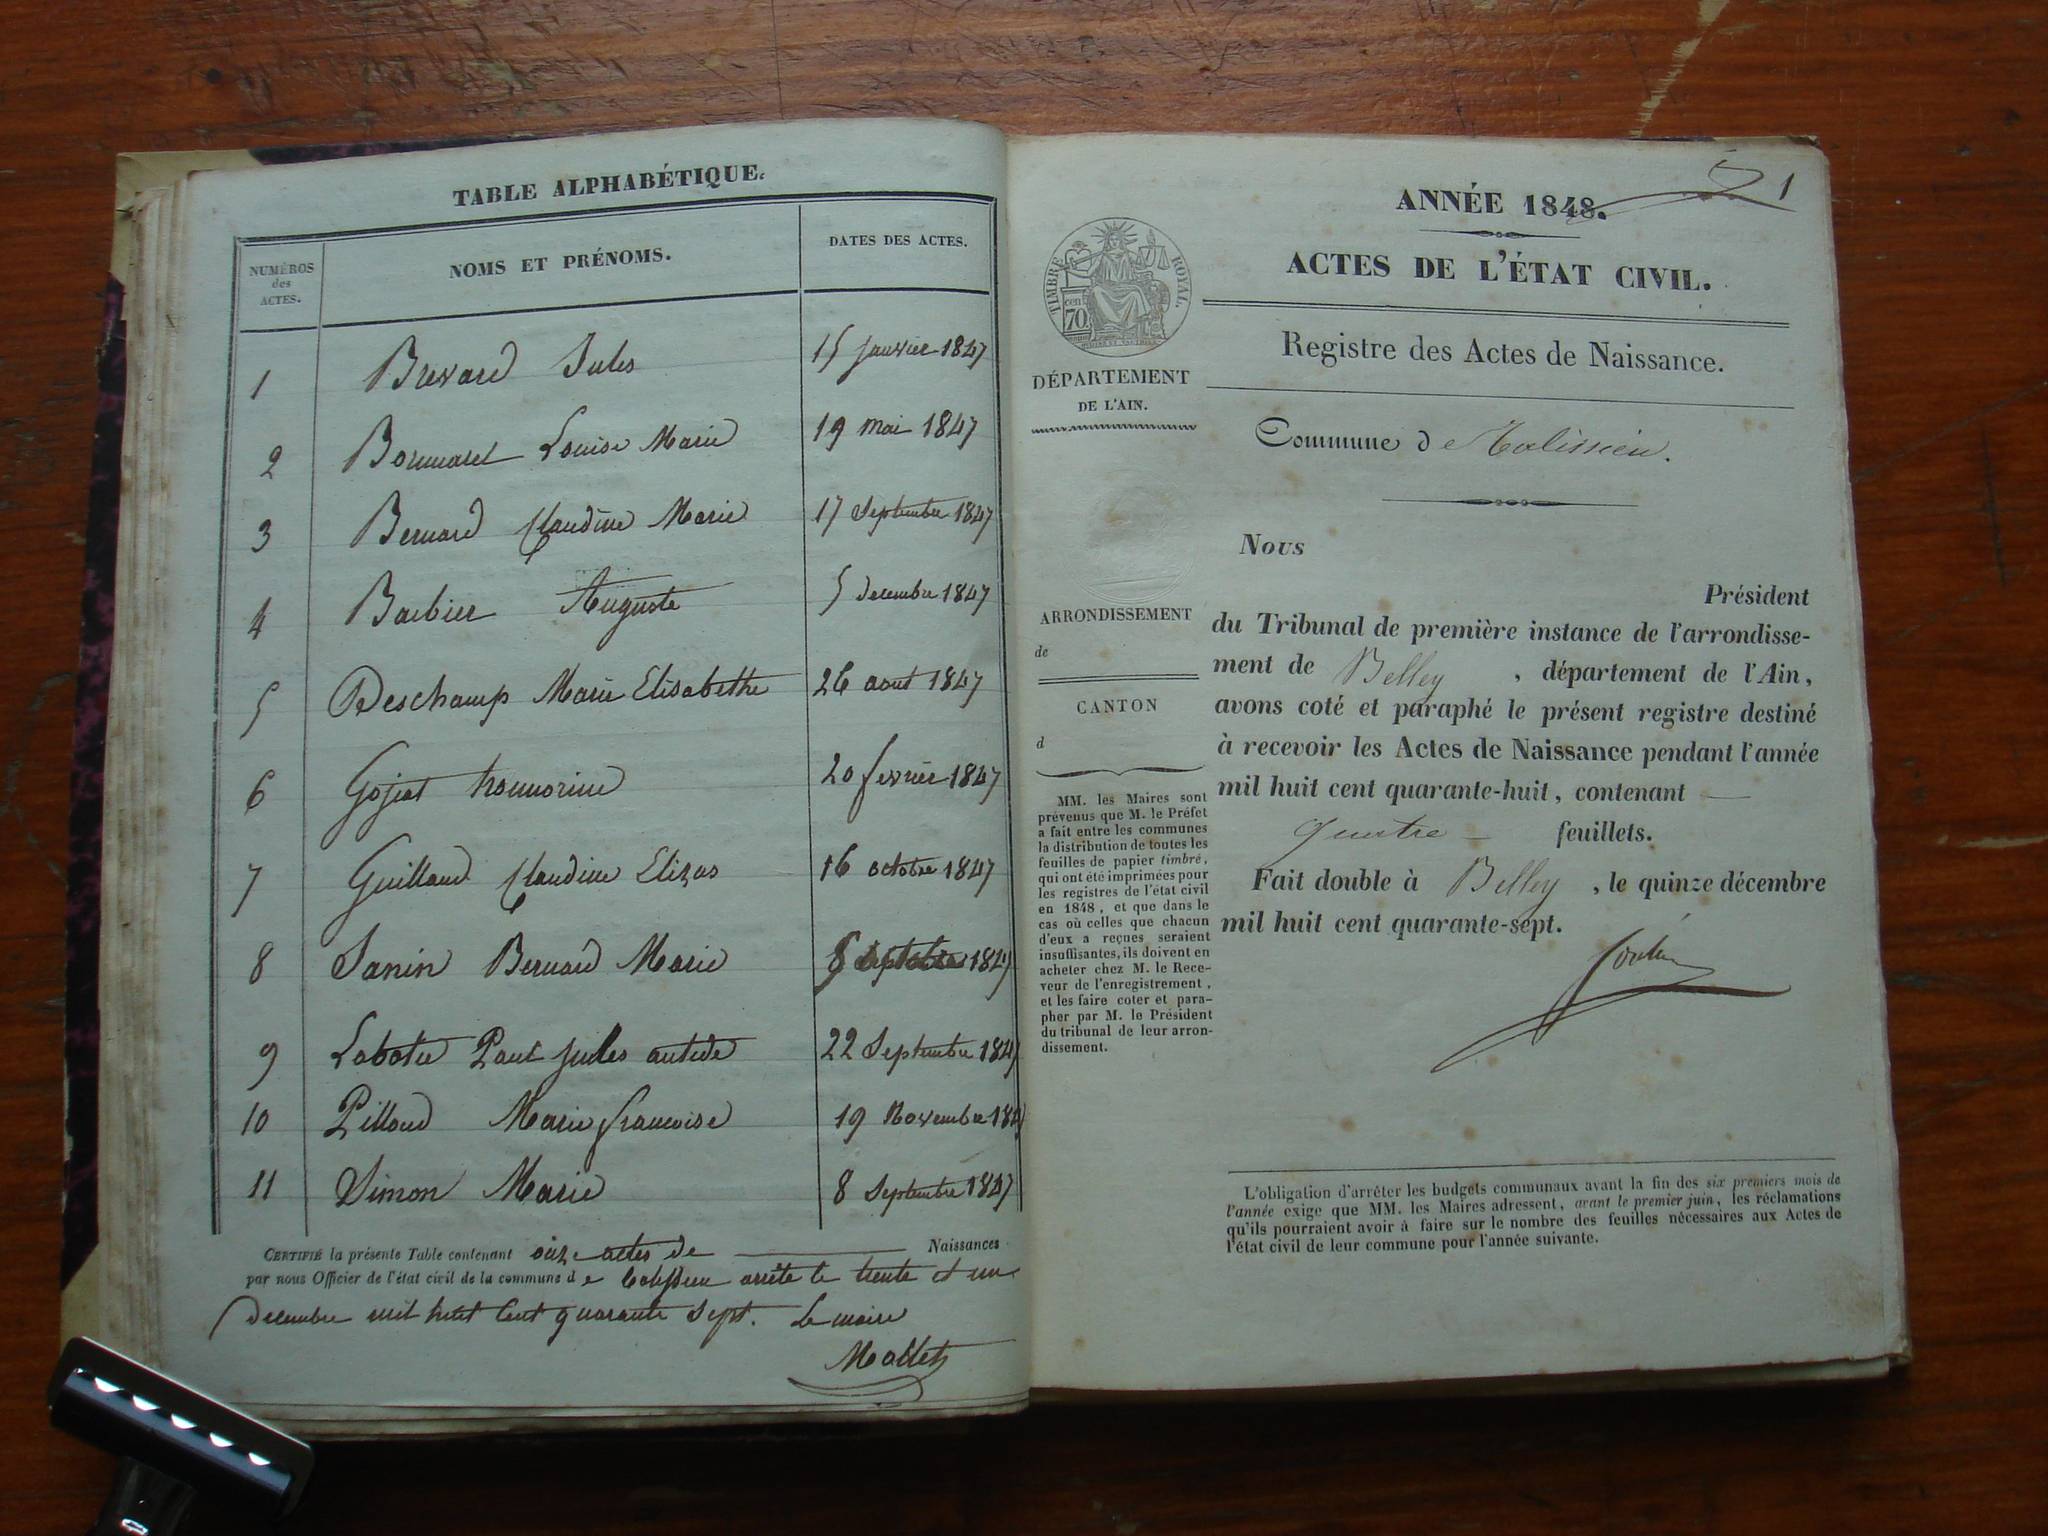 TABLE ALPHABÉTIQUE.
NUMÉROS des ACTES. NOMS ET PRÉNOMS. DATES DES ACTES.
1 Brevard Jules 15 janvier 1847
2 Louise Marie 19 mai 1847
3 Bernard Claudine Marie 17 Septembre 1847
4 Barbier Auguste 5 decembre 1847
5 Deschamp Marie Elisabethe 26 aout 1847
6 Gojat honnorine 20 fevrier 1847
7 Guilland Claudine Elizas 16 octobre 1847
8 Janin Bernard Marie 1847
9 Paul jules 22 Septembre 1847
10 Pilloud Marie francoise 19 Novembre 184
11 Simon Marie 8 Septembre 1847
CERTIFIÉ la présente Table contenant onze actes de Naissances
par nous Officier de l'état civil de la commune de arrêté le trente et un
decembre mil huit cent quarante sept. Le maire
Mollet
1
ANNÉE 1848.
ACTES DE L'ÉTAT CIVIL.
Registre des Actes de Naissance.
TIMBRE ROYAL.
cen 70
DÉPARTEMENT
DE L'AIN.
Commune de
ARRONDISSEMENT
de
CANTON
d
MM. les Maires sont
prévenus que M. le Préfet
a fait entre les communes
la distribution de toutes les
feuilles de papier timbré,
qui ont été imprimées pour
les registres de l'état civil
en 1848, et que dans le
cas où celles que chacun
d'eux a reçues seraient
insuffisantes, ils doivent en
acheter chez M. le Rece-
veur de l'enregistrement,
et les faire coter et para-
pher par M. le Président
du tribunal de leur arron-
dissement.
Nous
Président
du Tribunal de première instance de l'arrondisse-
ment de Belley, département de l'Ain,
avons coté et paraphé le présent registre destiné
à recevoir les Actes de Naissance pendant l'année
mil huit cent quarante-huit, contenant
quatre feuillets.
Fait double à Belley, le quinze décembre
mil huit cent quarante-sept.
L'obligation d'arrêter les budgets communaux avant la fin des six premiers mois de
l'année exige que MM. les Maires adressent, avant le premier juin, les réclamations
qu'ils pourraient avoir à faire sur le nombre des feuilles nécessaires aux Actes de
l'état civil de leur commune pour l'année suivante.